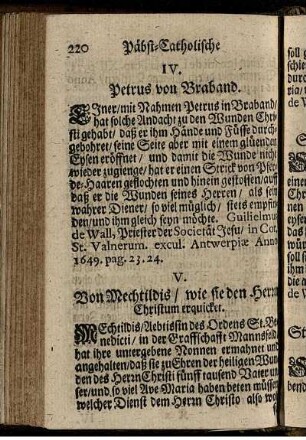 220 Päbst-Catholische
IV.
Petrus von Braband.
EIner/ mit Nahmen Petrus in Braband/
hat solche Andacht zu den Wunden Chri-
sti gehabt/ daß er ihm Hände und Füsse durch-
gebohret/ seine Seite aber mit einem glüenden
Eysen eröffnet/ und damit die Wunde nicht
wieder zugienge/ hat er einen Strick von Pfer-
de-Haaren geflochten und hinein gestossen/ auff
daß er die Wunden seines Herren/ als sein
wahrer Diener/ so viel müglich/ stets empfin-
den/ und ihm gleich seyn möchte. Guilielmus
de Wall, Priester der Societät Jesu/ in Cor.
St. Valnerum. excul. Antwerpiæ Anno
1649. pag. 23. 24.
V.
Von Mechtildis/ wie sie den Herrn
Christum erquicket.
MEchtildis/ Aebtissin des Ordens St. Be-
nedicti/ in der Graffschafft Mannsfeld/
hat ihre untergebene Nonnen ermahnet und
angehalten/ daß sie zu Ehren der heiligen Wun-
den des Herrn Christi fünff tausend Vater un-
ser/ und so viel Ave Maria haben beten müssen/
welcher Dienst dem Herrn Christo also wol